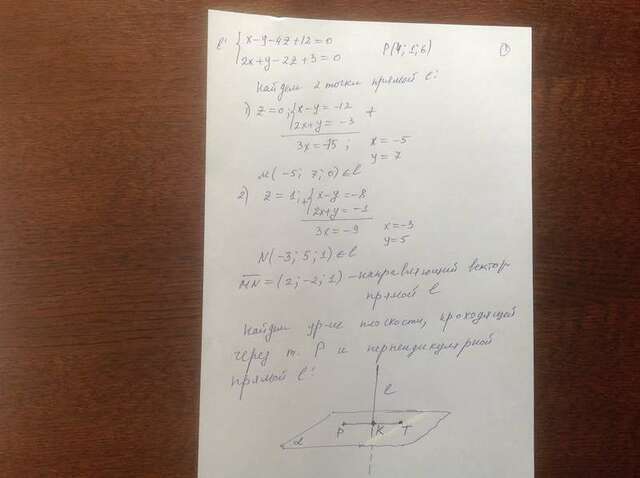 l: { x-y-4z+12=0 P(4;1;6) (1)
2x+y-2z+3=0
Найдем 2 точки прямой l:
1) z=0; { x-y=-12 +
2x+y=-3
3x=-15; x=-5
y=7
M(-5; 7; 0) ∈ l
2) z=1; + { x-y=-8
2x+y=-1
3x=-9 x=-3
y=5
N(-3; 5; 1) ∈ l
MN=(2;-2;1) - направляющий вектор
прямой l
Найдем ур-ие плоскости, проходящей
через т. P и перпендикулярной
прямой l:
l
P K T
α